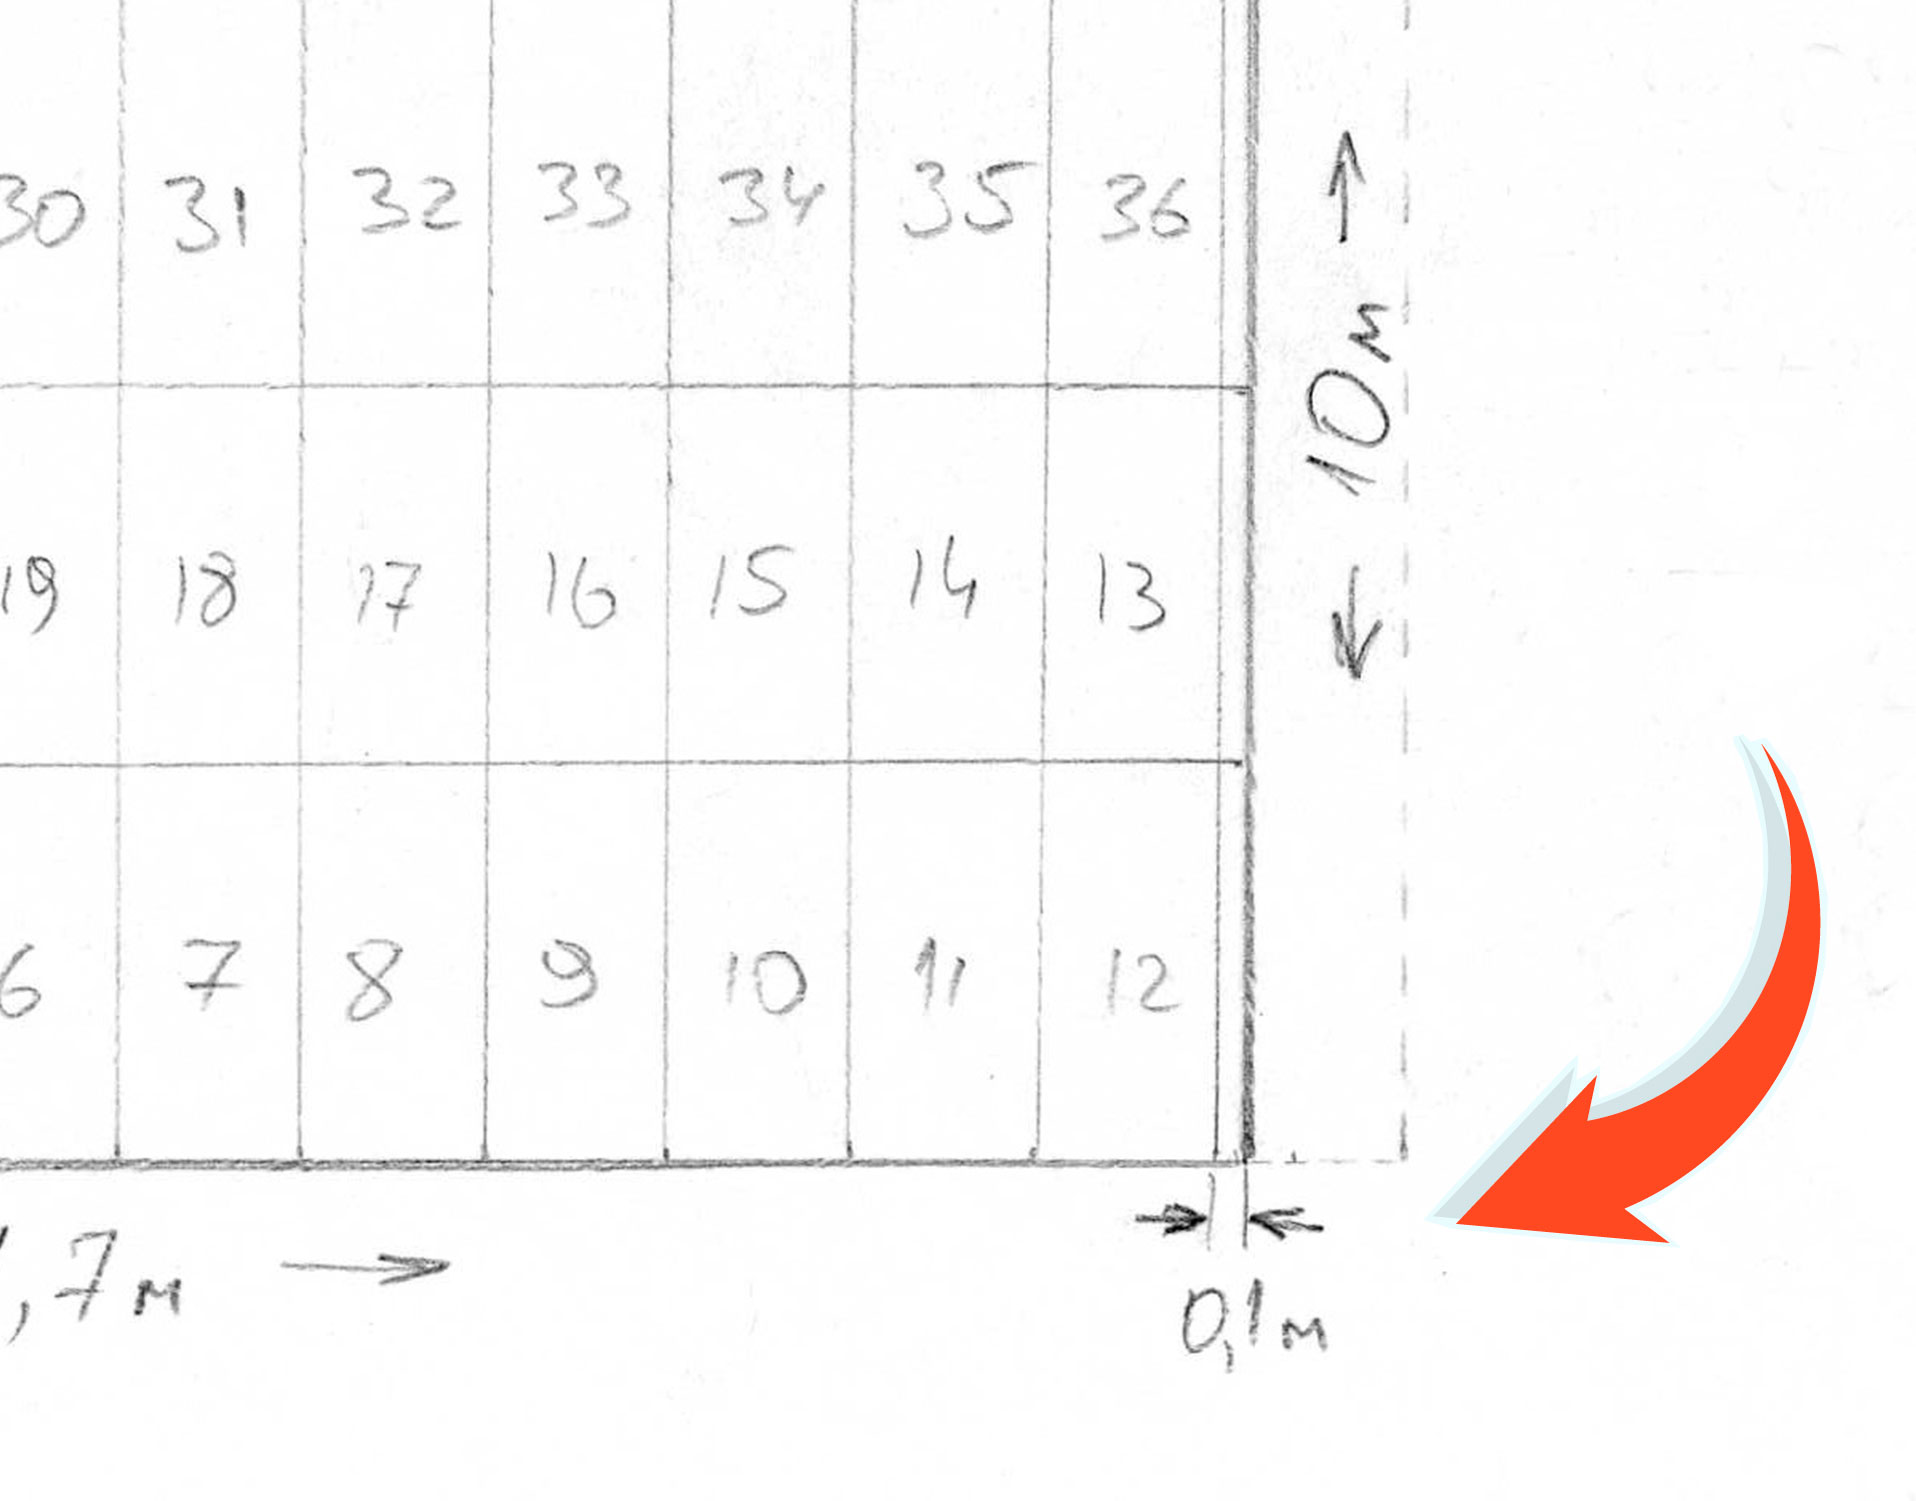 30 31 32 33 34 35 36
10м
19 18 17 16 15 14 13
6 7 8 9 10 11 12
,7м
0,1м